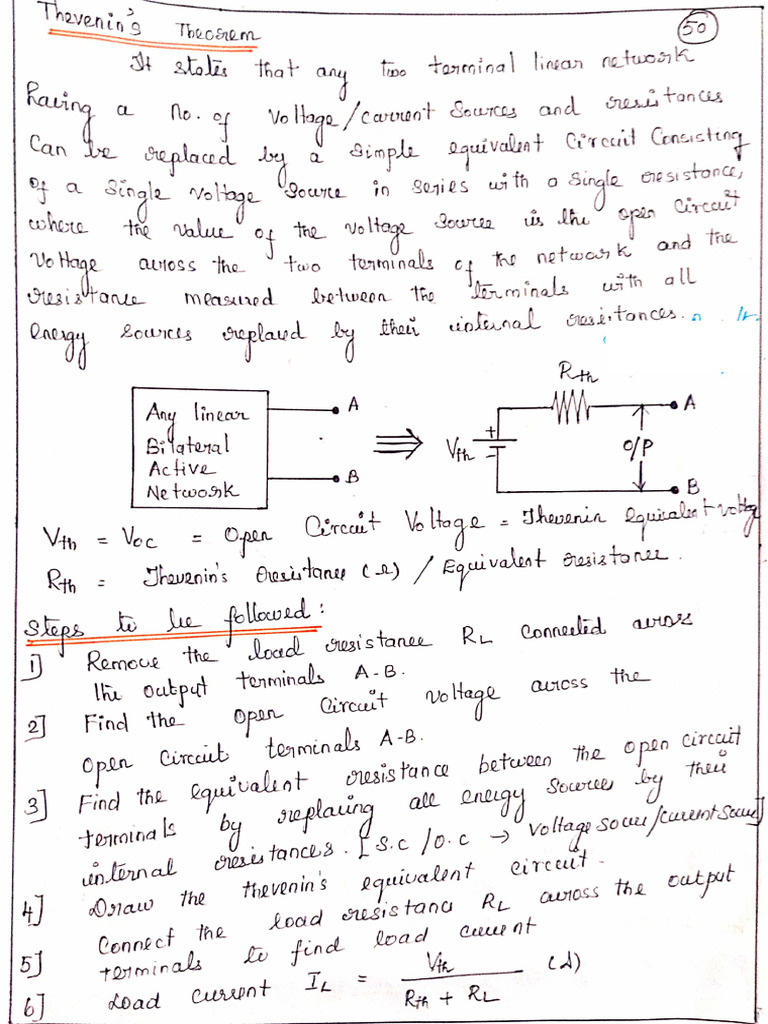 Thevenin's Theorem
50
It states that any two terminal linear network
having a no. of voltage/current sources and resistances
Can be replaced by a simple equivalent Circuit Consisting
of a single voltage source in series with a single resistance,
where the value of the voltage source is the open circuit
voltage across the two terminals of the network and the
resistance measured between the terminals with all
energy sources replaced by their internal resistances.
Any linear
Bilateral
Active
Network
A
B
Rth
Vth
+
-
A
O/P
B
Vth = Voc = Open Circuit Voltage = Thevenin equivalent voltage
Rth = Thevenin's resistance (Ω) / Equivalent resistance.
Steps to be followed:
1] Remove the load resistance RL connected across
the output terminals A-B.
2] Find the open circuit voltage across the
open circuit terminals A-B.
3] Find the equivalent resistance between the open circuit
terminals by replacing all energy sources by their
internal resistances. [S.C/O.C → voltage source/current source]
4] Draw the thevenin's equivalent circuit.
5] Connect the load resistance RL across the output
terminals to find load current
6] Load current IL = Vth / (Rth + RL) (A)